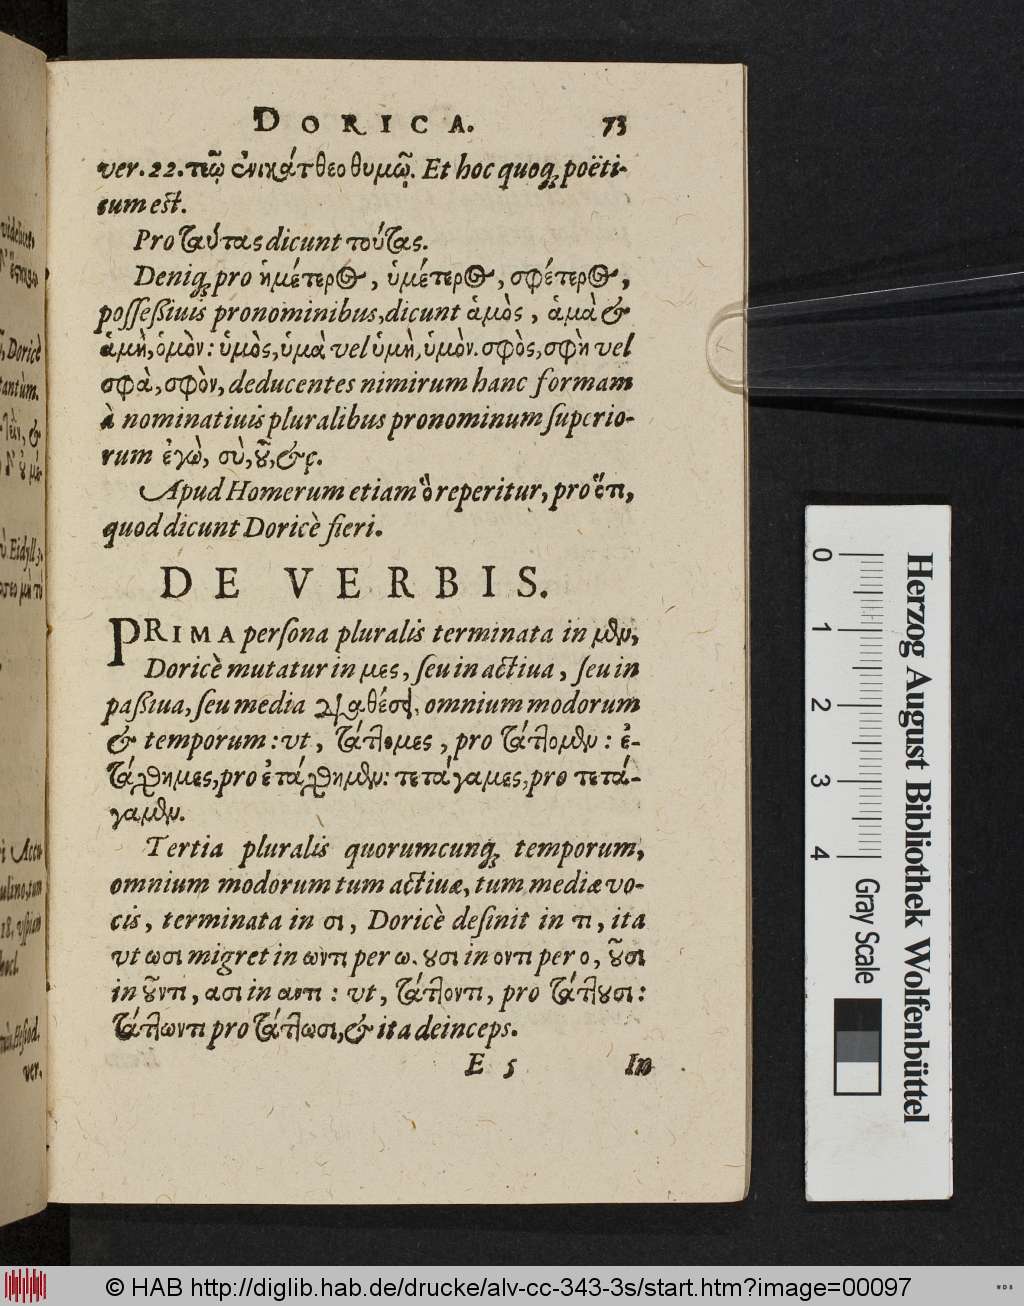 DORICA. 73
ver. 22. τεῷ ἐνικάτθεο θυμῷ. Et hoc quoq; poëti-
cum est.
Pro ταύτας dicunt τούτας.
Deniq; pro ἡμέτερος, ὑμέτερος, σφέτερος,
possessiuis pronominibus, dicunt ἁμὸς, ἁμὰ &
ἁμὴ, ὁμὸν: ὑμὸς, ὑμὰ vel ὑμὴ, ὑμὸν. σφὸς, σφὴ vel
σφὰ, σφὸν, deducentes nimirum hanc formam
à nominatiuis pluralibus pronominum superio-
rum ἐγὼ, σὺ, οὗ, &c.
Apud Homerum etiam ὃ reperitur, pro ὅτι,
quod dicunt Doricè fieri.
DE VERBIS.
PRIMA persona pluralis terminata in μεν,
Doricè mutatur in μες, seu in actiua, seu in
passiua, seu media διαθέσει, omnium modorum
& temporum: vt, τάττομες, pro τάττομεν: ἐ-
τάχθημες, pro ἐτάχθημεν: τετάγαμες, pro τετά-
γαμεν.
Tertia pluralis quorumcunq; temporum,
omnium modorum tum actiuæ, tum mediæ vo-
cis, terminata in σι, Doricè desinit in τι, ita
vt ωσι migret in ωντι per ω. ουσι in οντι per ο, οῦσι
in οῦντι, ασι in αντι: vt, τάττοντι, pro τάττουσι:
τάττωντι pro τάττωσι, & ita deinceps.
E 5 In
videlicet,
Doricè
tantùm.
Eidyll. 3.
ver.
0 1 2 3 4
Gray Scale
Herzog August Bibliothek Wolfenbüttel
© HAB http://diglib.hab.de/drucke/alv-cc-343-3s/start.htm?image=00097